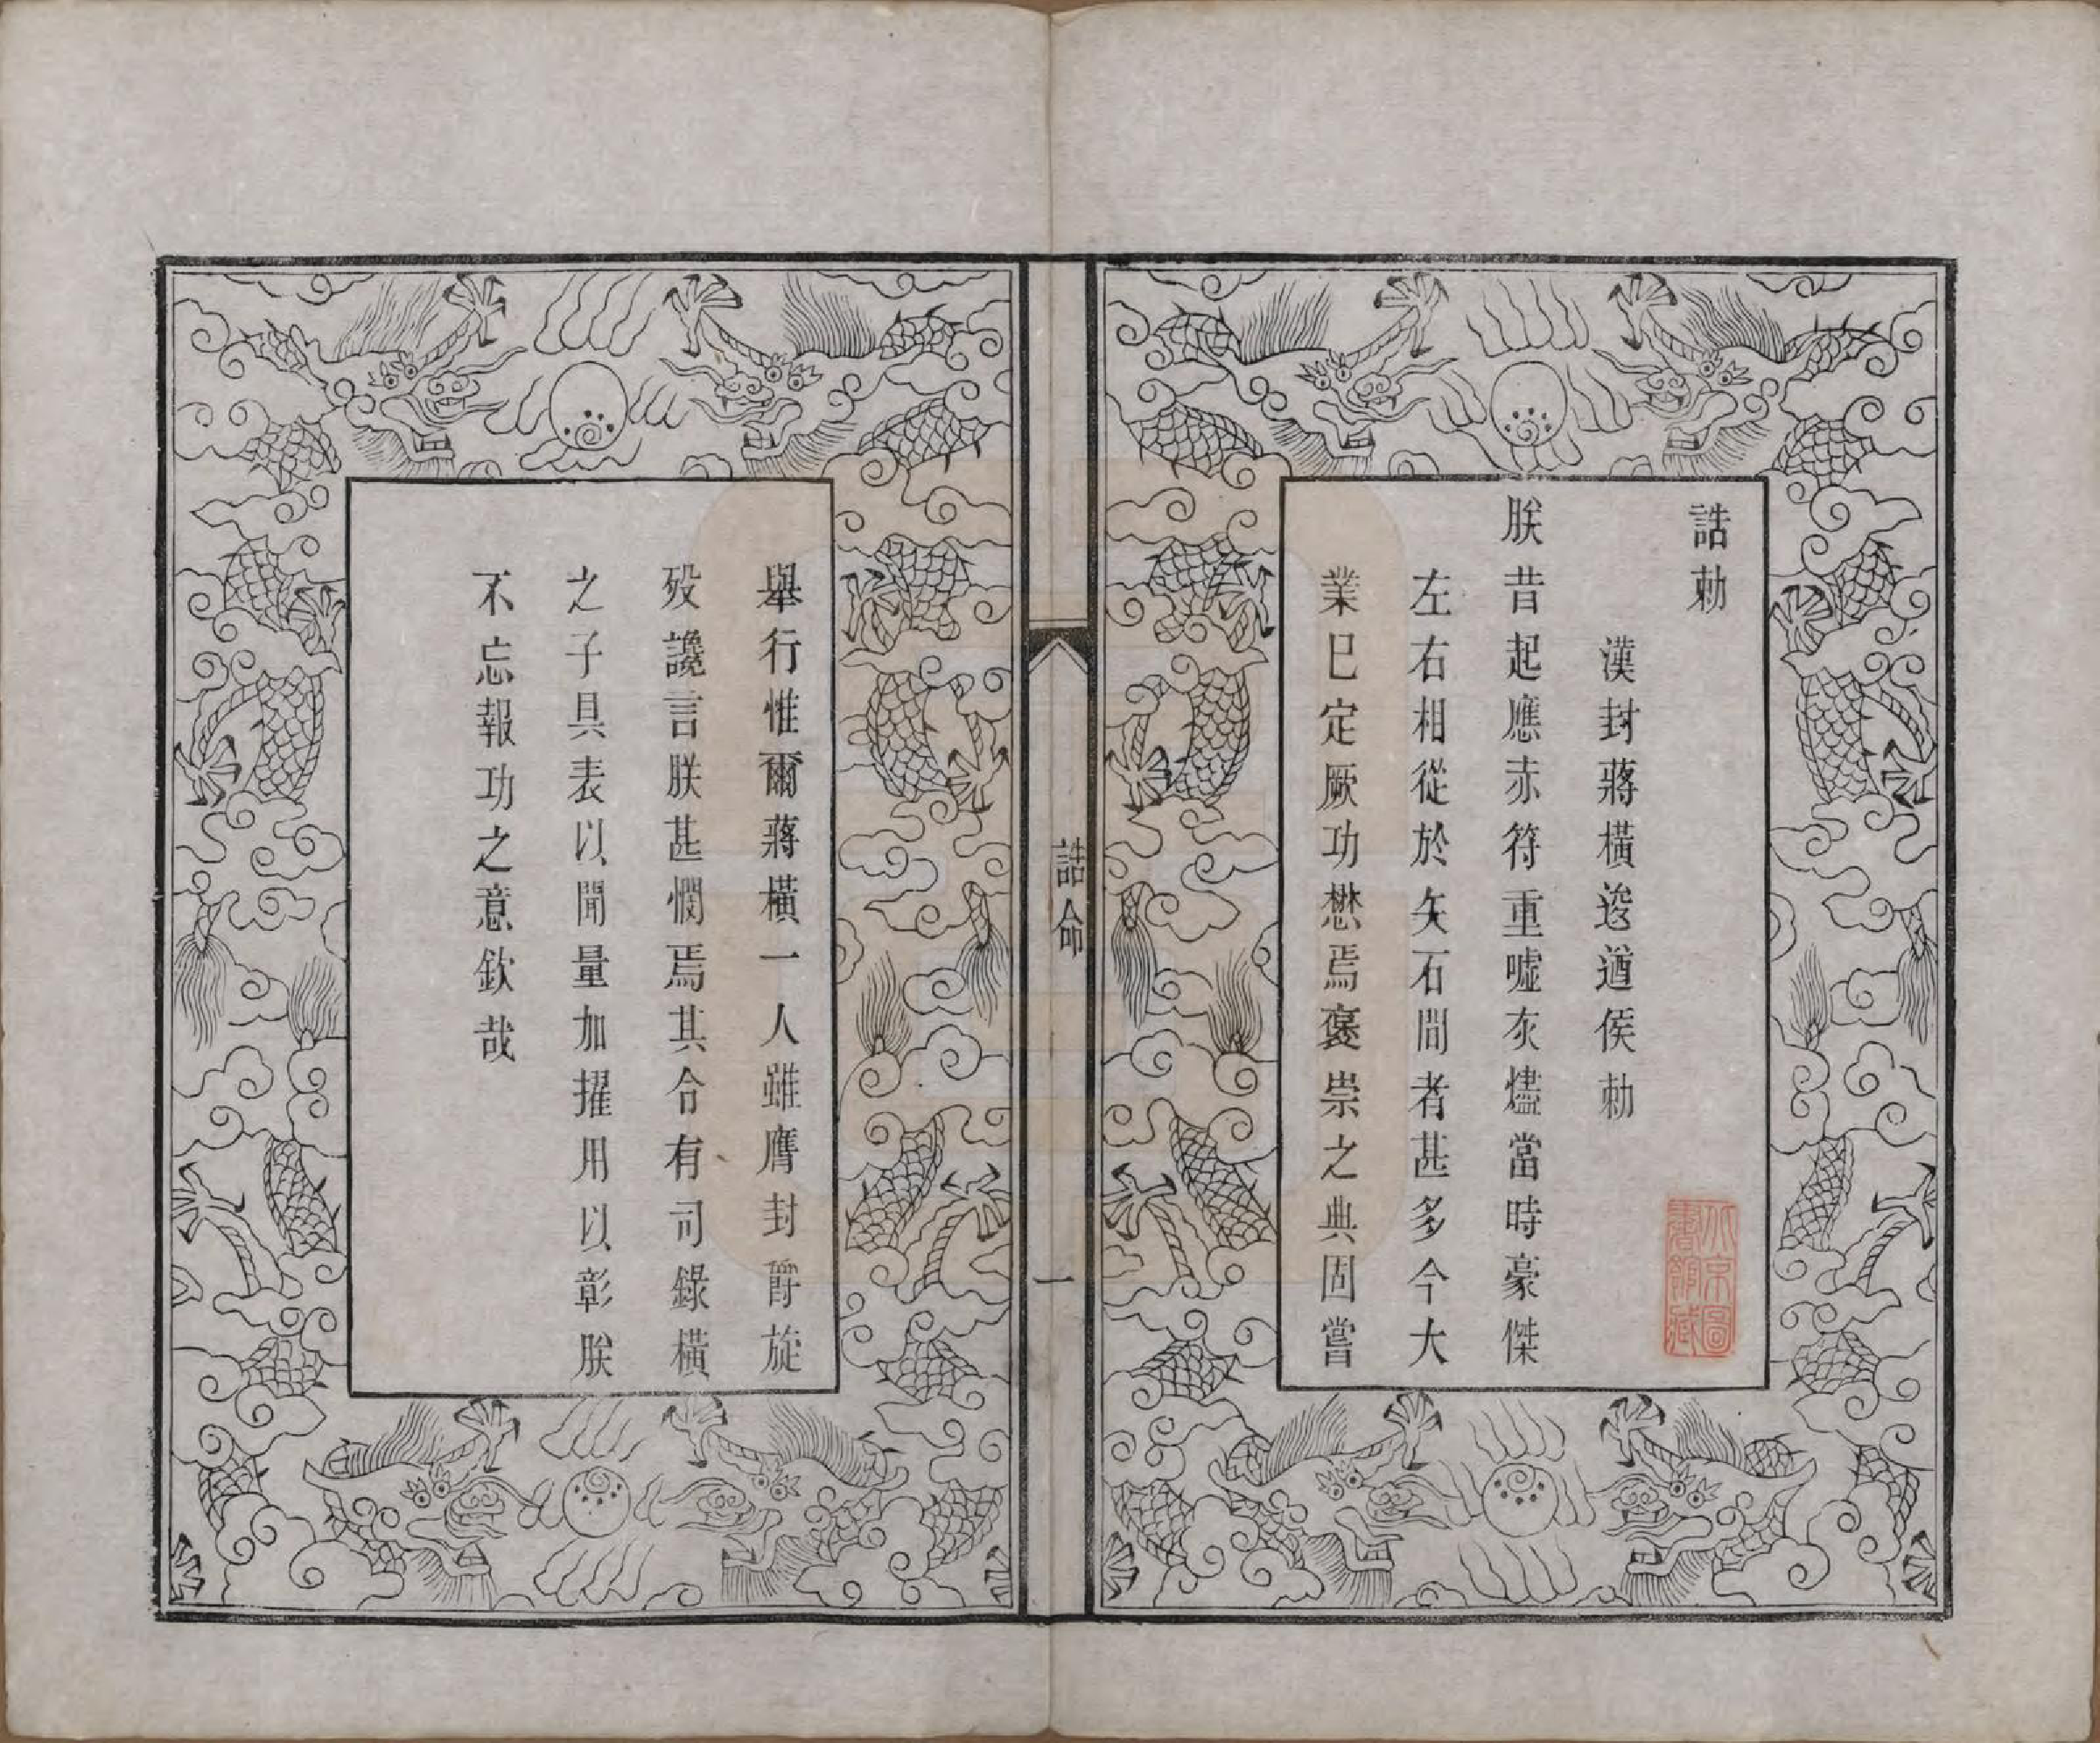 誥勅
漢封蔣橫逡遒侯勅
朕昔起應赤符重噓灰燼當時豪傑
左右相從於矢石間者甚多今大
業巳定厥功懋焉褒崇之典固嘗
舉行惟爾蔣橫一人雖膺封爵旋
歿讒言朕甚憫焉其令有司錄橫
之子具表以聞量加擢用以彰朕
不忘報功之意欽哉
誥命
一
北京圖
書館藏